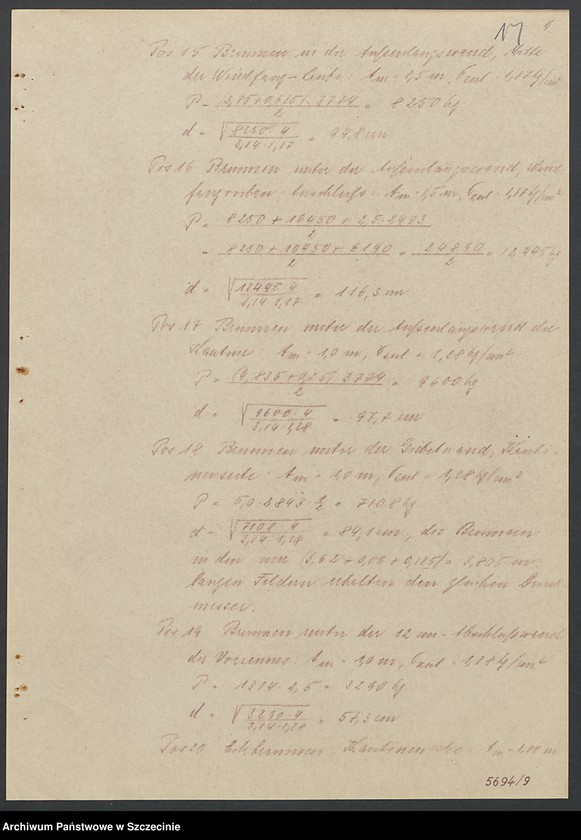 17
Pos 15 Brunnen in der Außenlängswand, Mitte
der Windfang-
P =
2
= 8250 kg
d = √ 8250 · 4 / 3,14 · 1,17 = 94,8 cm
Pos 16 Brunnen unter der Außenlängswand, Wind
P = 8250 + 10450 + 2,5 · 2403
2
= 8250 + 10450 + 6190 / 2 = 24890 / 2 = 12445 kg
d = √ 12445 · 4 / 3,14 · 1,17 = 116,3 cm
Pos 17 Brunnen unter der Außenlängswand der
Kantine: tm = 1,0 m, = 1,28 kg/cm²
P = 2 = 9600 kg
d = √ 9600 · 4 / 3,14 · 1,28 = 97,7 cm
Pos 18 Brunnen unter der Giebelwand, Kanti-
nenseite: tm = 1,0 m, = 1,28 kg/cm²
P = 5,0 · 2843 · ½ = 7108 kg
d = √ 7108 · 4 / 3,14 · 1,28 = 84,1 cm, die Brunnen
in den um = 3,805 m
langen Feldern erhalten den gleichen Durch
messer.
Pos 19 Brunnen unter der 12 cm - Abschlußwand
des Vorraumes: tm = 1,0 m, = 1,28 kg/cm²
P = 1314 · 2,5 = 3290 kg
d = √ 3290 · 4 / 3,14 · 1,28 = 57,3 cm
Pos 20 Eckbrunnen, tm = 1,00 m
5694/9
Archiwum Państwowe w Szczecinie